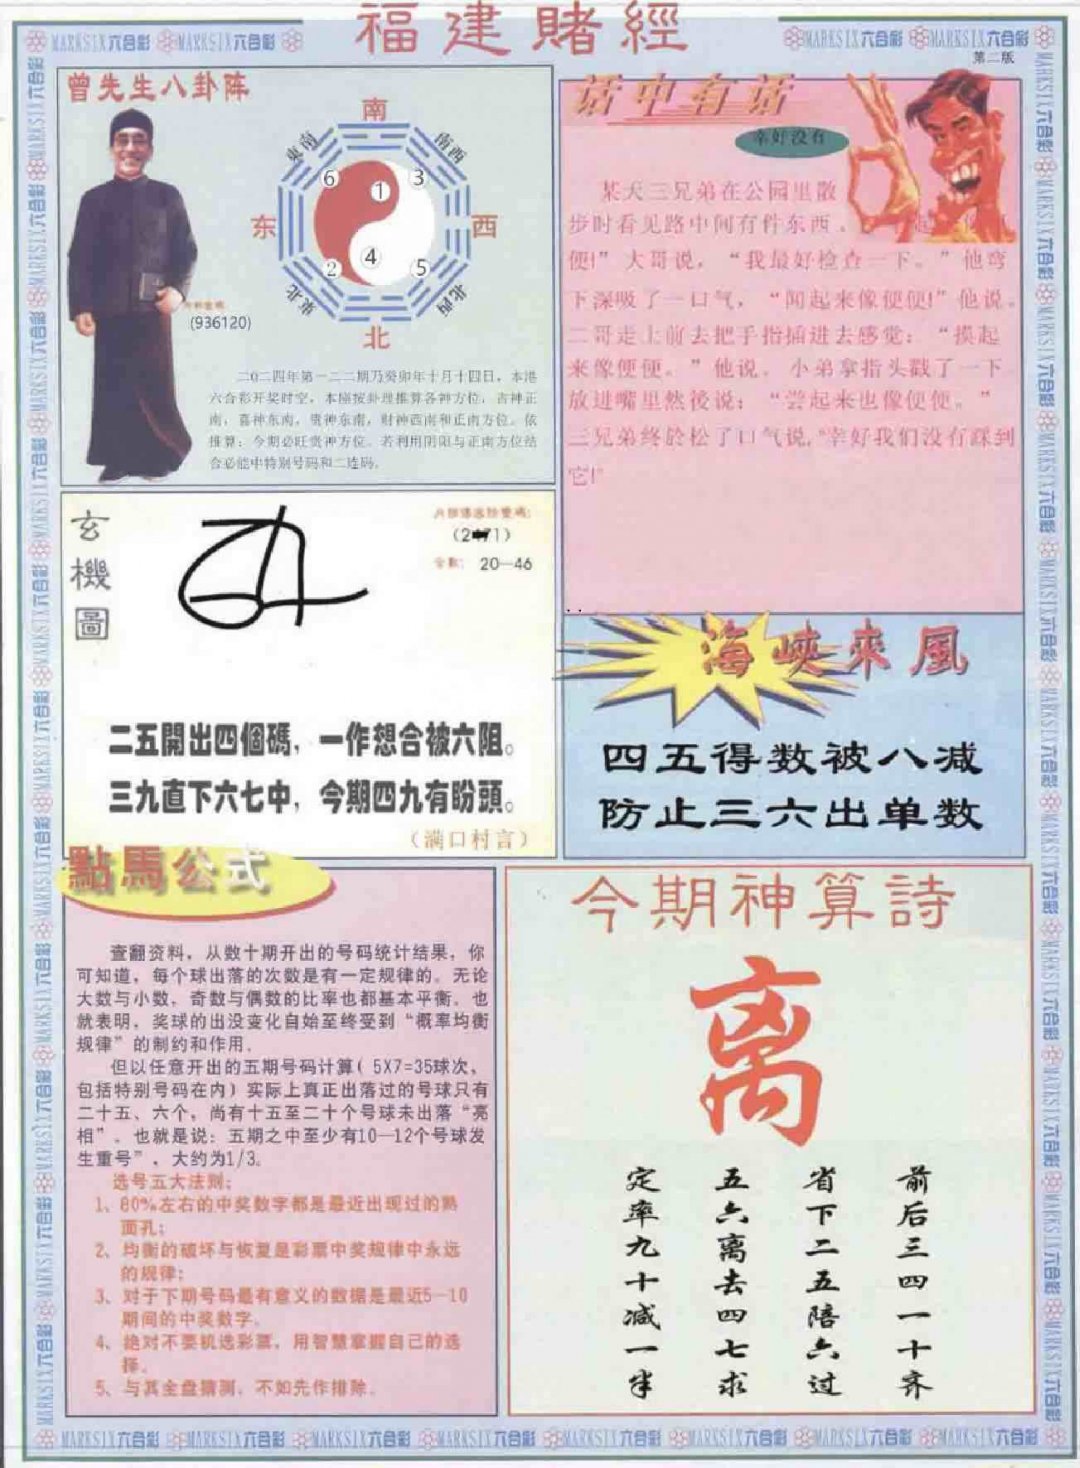 福建賭經
MARKSIX六合彩 MARKSIX六合彩 MARKSIX六合彩 MARKSIX六合彩
第二版
曾先生八卦阵
南
東南
南西
6
1
3
东
西
2
4
5
東北
北西
北
(936120)
二0二四年第一二二期乃癸卯年十月十四日，本港
六合彩开奖时空，本座按卦理推算各神方位，吉神正
南，喜神东南，贵神东南，财神西南和正南方位。依
推算：今期必旺贵神方位。若利用阴阳与正南方位结
合必能中特别号码和二连码。
话中有话
幸好没有
某天三兄弟在公园里散
步时看见路中间有件东西。
便!”大哥说，“我最好检查一下。”他弯
下深吸了一口气，“闻起来像便便!”他说。
二哥走上前去把手指插进去感觉：“摸起
来像便便。”他说。小弟拿指头戳了一下
放进嘴里然後说：“尝起来也像便便。”
三兄弟终於松了口气说,“幸好我们没有踩到
它!”
玄機圖
20—46
二五開出四個碼，一作想合被六阻。
三九直下六七中，今期四九有盼頭。
（满口村言）
海峽來風
四五得数被八减
防止三六出单数
點馬公式
查翻资料，从数十期开出的号码统计结果，你
可知道，每个球出落的次数是有一定规律的。无论
大数与小数，奇数与偶数的比率也都基本平衡。也
就表明，奖球的出没变化自始至终受到“概率均衡
规律”的制约和作用。
但以任意开出的五期号码计算( 5X7=35球次，
包括特别号码在内）实际上真正出落过的号球只有
二十五、六个，尚有十五至二十个号球未出落“亮
相”。也就是说：五期之中至少有10—12个号球发
生重号”，大约为1/3。
选号五大法则：
1、80%左右的中奖数字都是最近出现过的熟
面孔；
2、均衡的破坏与恢复是彩票中奖规律中永远
的规律；
3、对于下期号码最有意义的数据是最近5—10
期间的中奖数字。
4、绝对不要机选彩票，用智慧掌握自己的选
择。
5、与其全盘猜测，不如先作排除。
今期神算詩
离
前后三四一十齐
省下二五陪六过
五六离去四七求
定率九十减一半
MARKSIX六合彩 MARKSIX六合彩 MARKSIX六合彩 MARKSIX六合彩 MARKSIX六合彩 MARKSIX六合彩 MARKSIX六合彩 MARKSIX六合彩